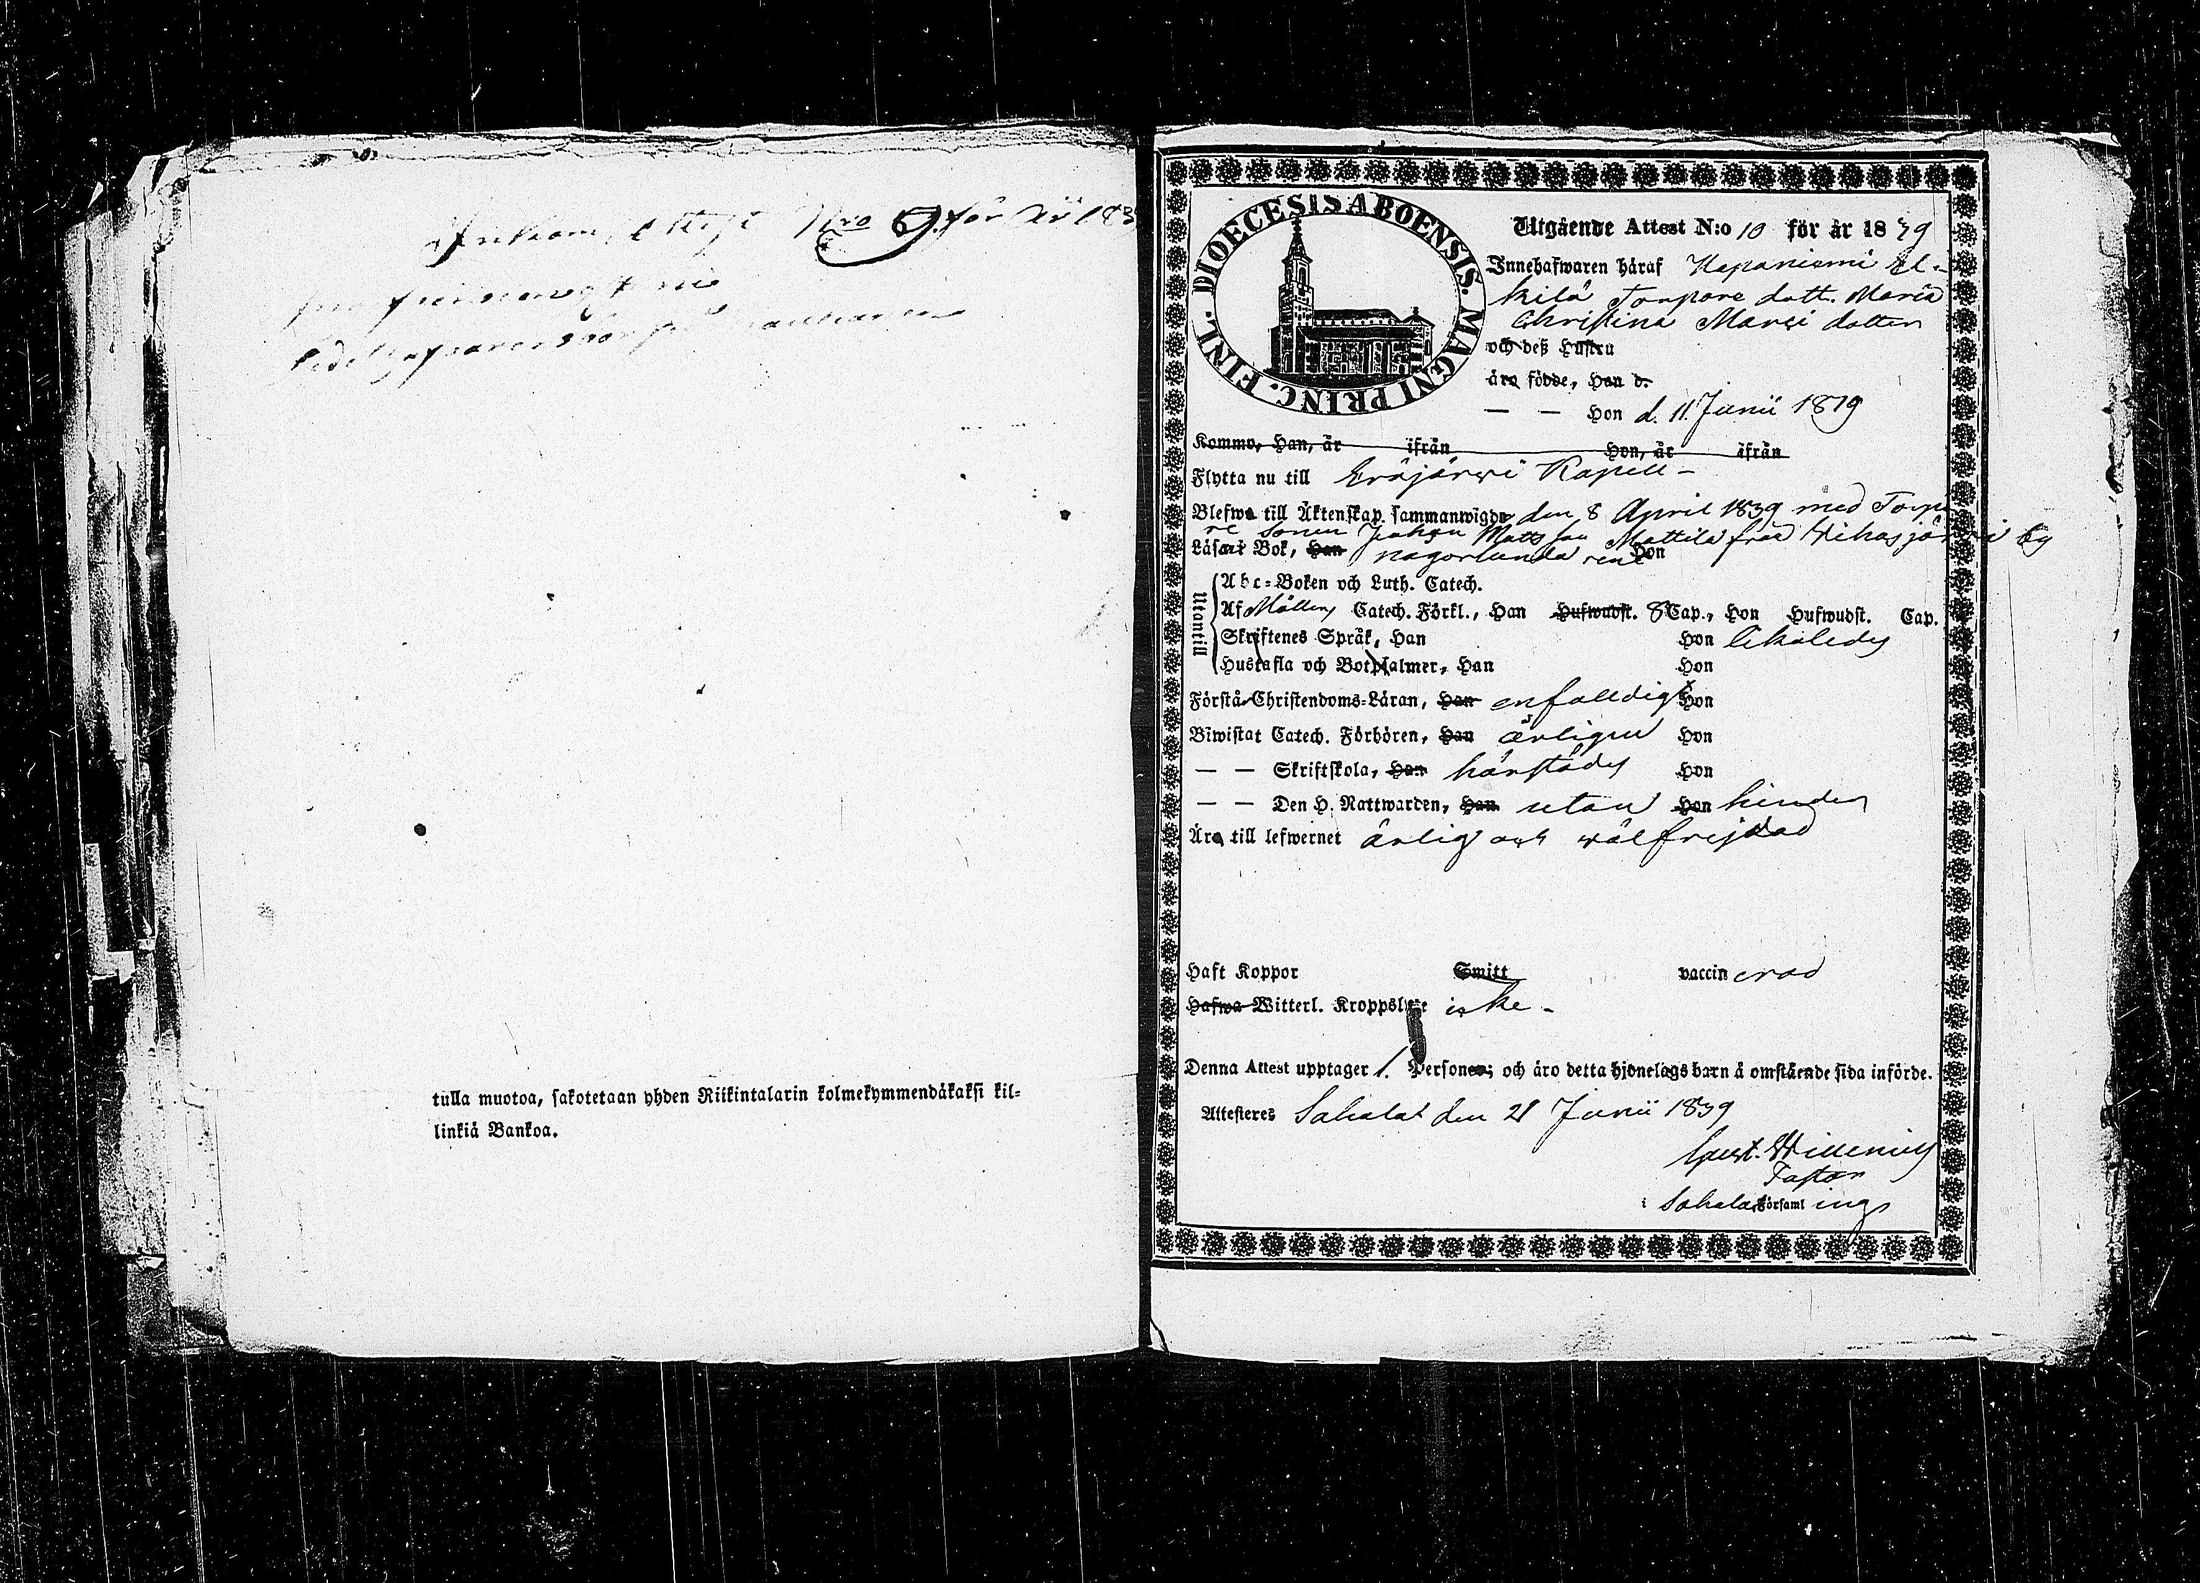 Inkom. Attest Nro 9. för År 183
tulla muotoa, sakotetaan yhden Riikintalarin kolmekymmendäkaksi kil=
linkiä Bankoa.
DIOECESIS ABOENSIS. MAGNI PRINC. FINL.
Utgående Attest N:o 10 för år 1839
Innehafwaren häraf Hepaniemi Es-
kilä Torpare dott. Maria
Christina Marci dotter
och deß Hustru
äro födde, Han d.
— — Hon d. 11 Junii 1819
Kommo, Han, år ifrån Hon, år ifrån
Flytta nu till Eräjärwi Kapell -
Blefwo till Äktenskap sammanwigde den 8 April 1839 med Torpa
re sonen Johan Matts son Mattila från Wihasjärwi by
Läsa i Bok, Han någorlunda rent Hon
Utontill
Abc=Boken och Luth. Catech.
Af Möllers Catech. Förkl., Han Hufwudst. 8 Cap., Hon Hufwudst. Cap.
Skriftenes Språk, Han Hon likaledes
Hustafla och Botpsalmer, Han Hon
Förstå Christendoms=Läran, Han enfalldigt Hon
Biwistat Catech. Förhören, Han årligen Hon
— — Skriftskola, Han härstädes Hon
— — Den H. Nattwarden, Han utan Hon hinder
Äro till lefwernet ärlig och wälfrejdad
Haft Koppor Smitt vaccinerad
Hafwa Witterl. Kroppslyte icke -
Denna Attest upptager 1. Personer; och äro detta hjonelags barn å omstående sida införde.
Attesteres Sahalax den 21 Junii 1839
Gust. Willenius
Pastor
i Sahalax Församlings